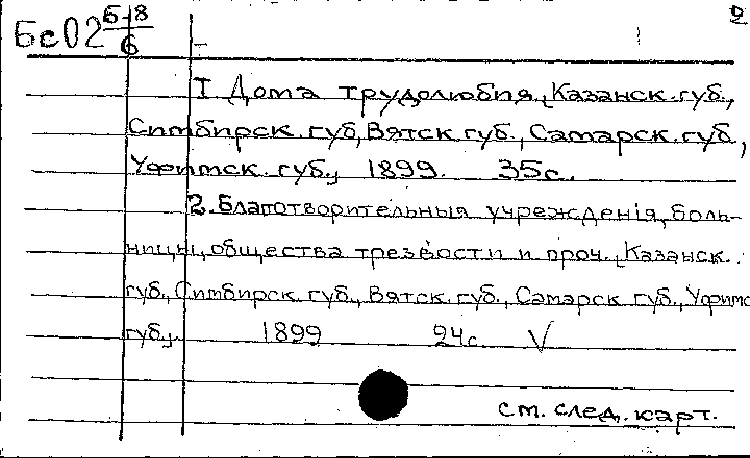 Бс02 5-8/6
I Дома трудолюбия, [Казанск. губ.,
Симбирск. губ, Вятск губ., Самарск. губ,
Уфимск. губ.] 1899. 35с.
2. Благотворительныя учрежденія, боль-
ницы, общества трезвости и проч., [Казанск.
губ., Симбирск. губ., Вятск. губ., Самарск губ., Уфимс
губ.]. 1899 24с. V
см. след. карт.